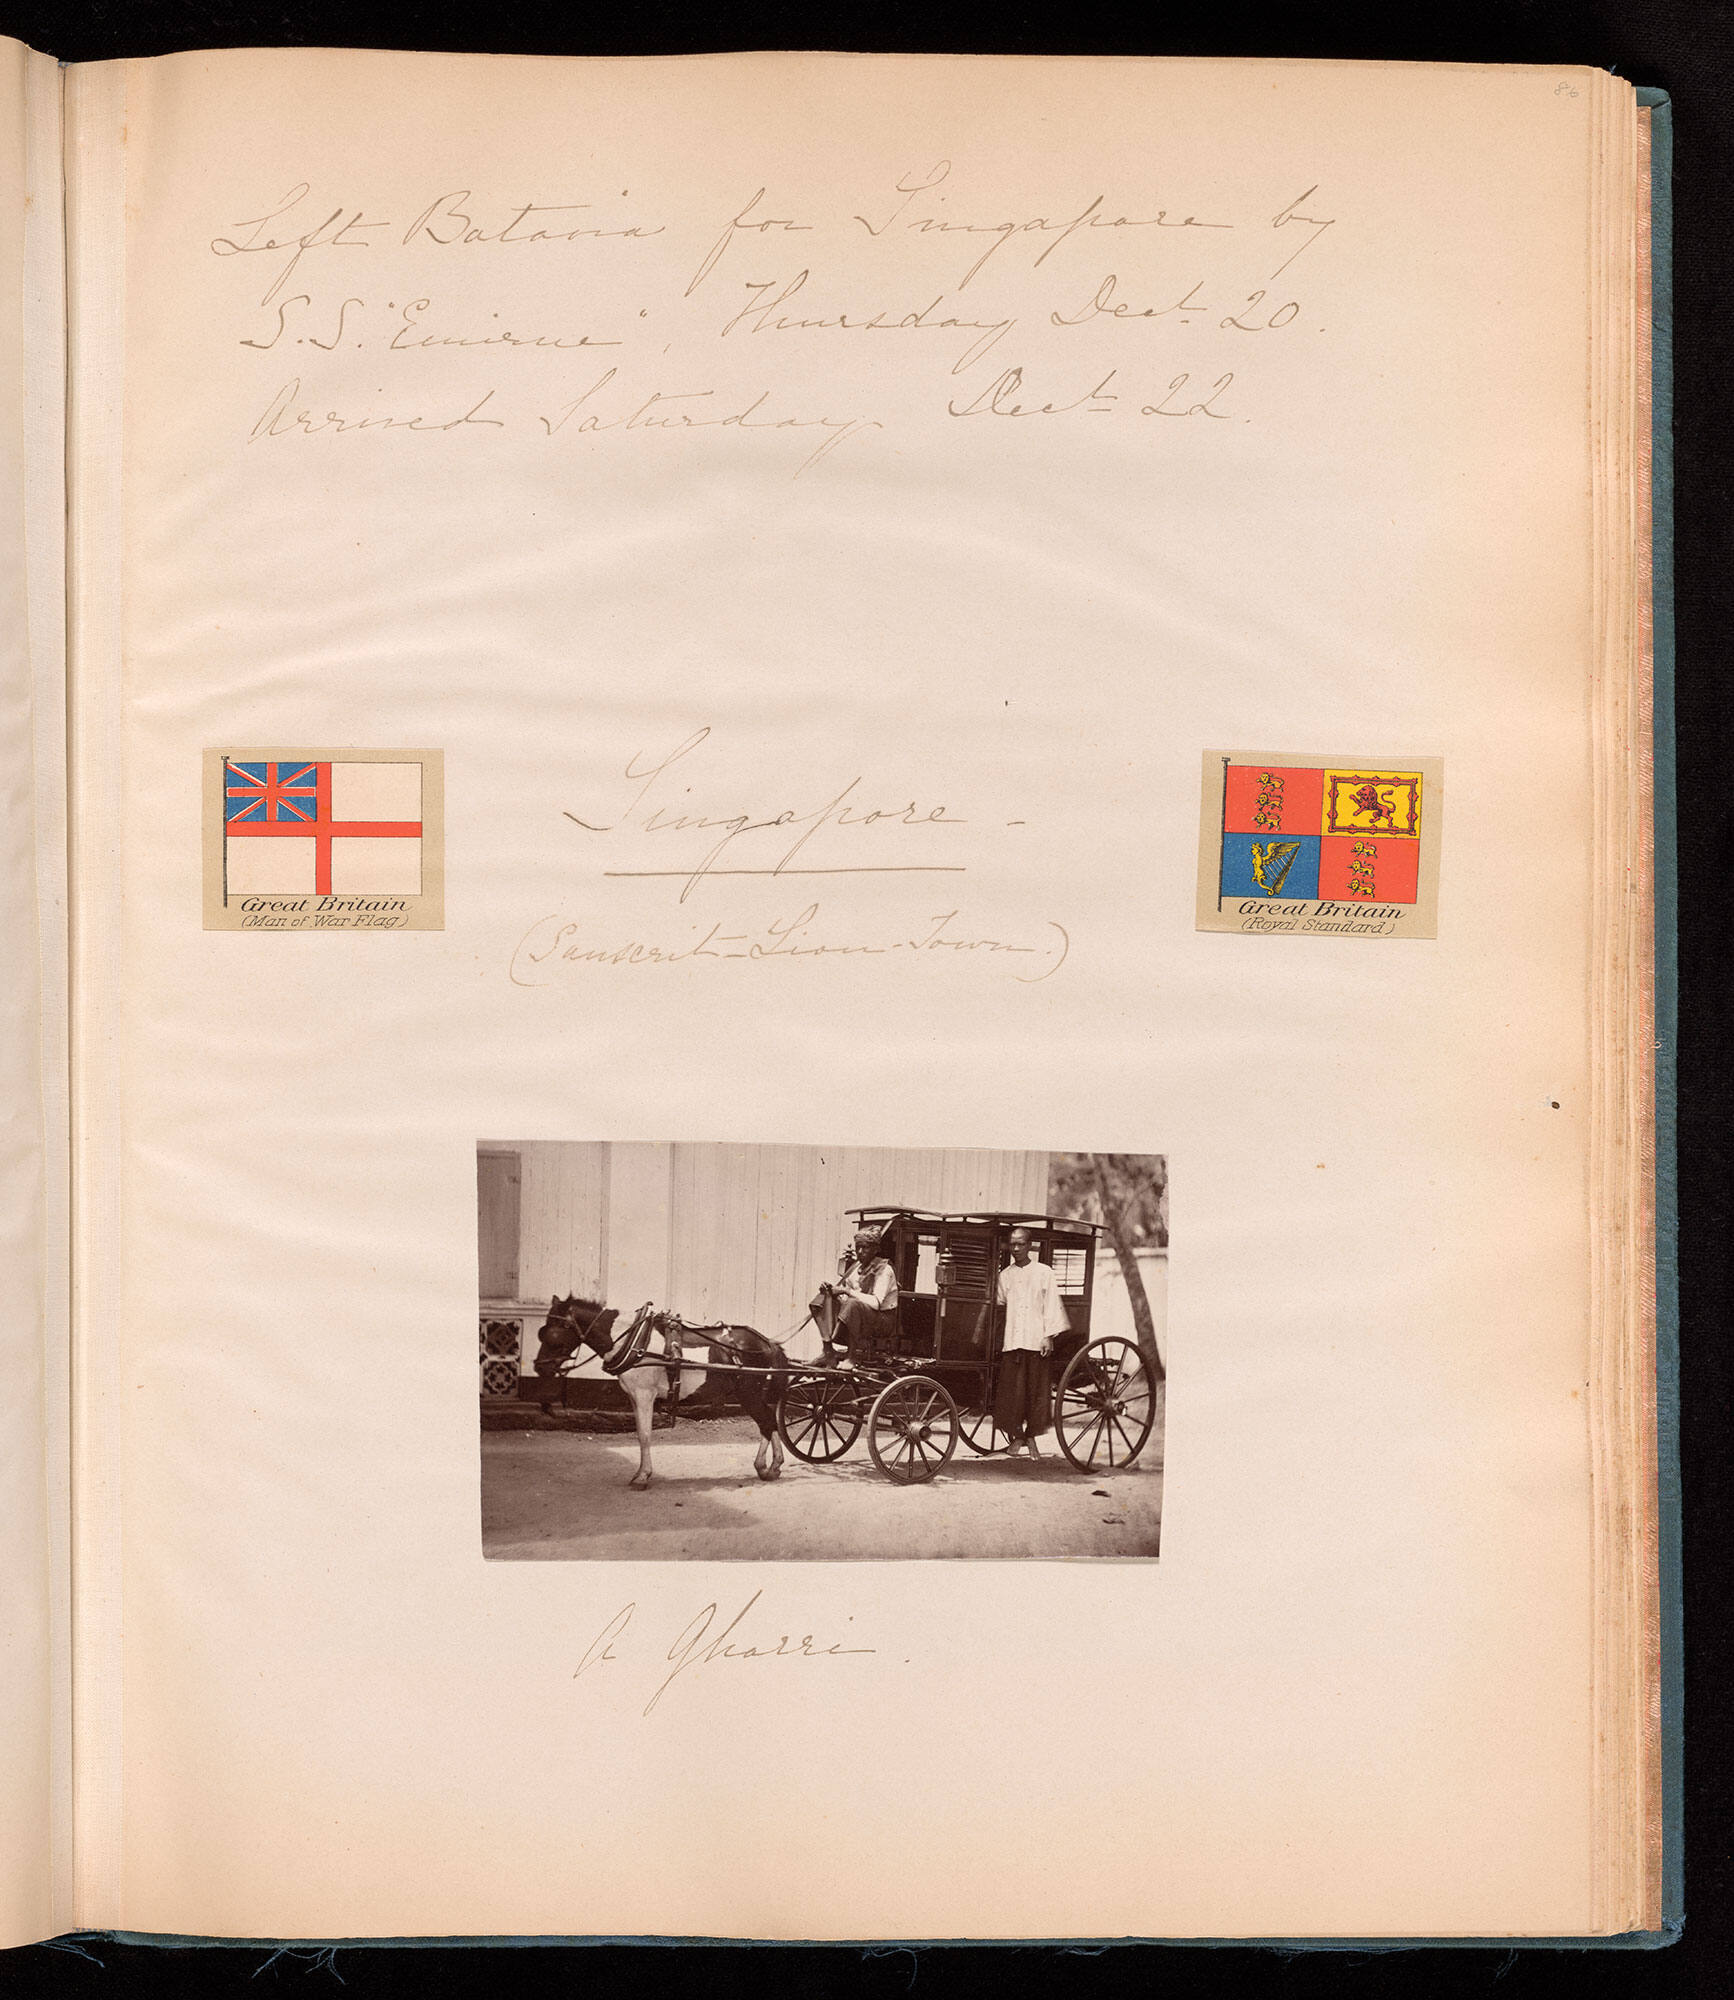 86
Left Batavia for Singapore by
S.S. "Emirne", Thursday Dect. 20.
Arrived Saturday Dect. 22.
Singapore -
(Sanscrit - Lion - Town.)
Great Britain
(Man of War Flag)
Great Britain
(Royal Standard)
A Gharri.